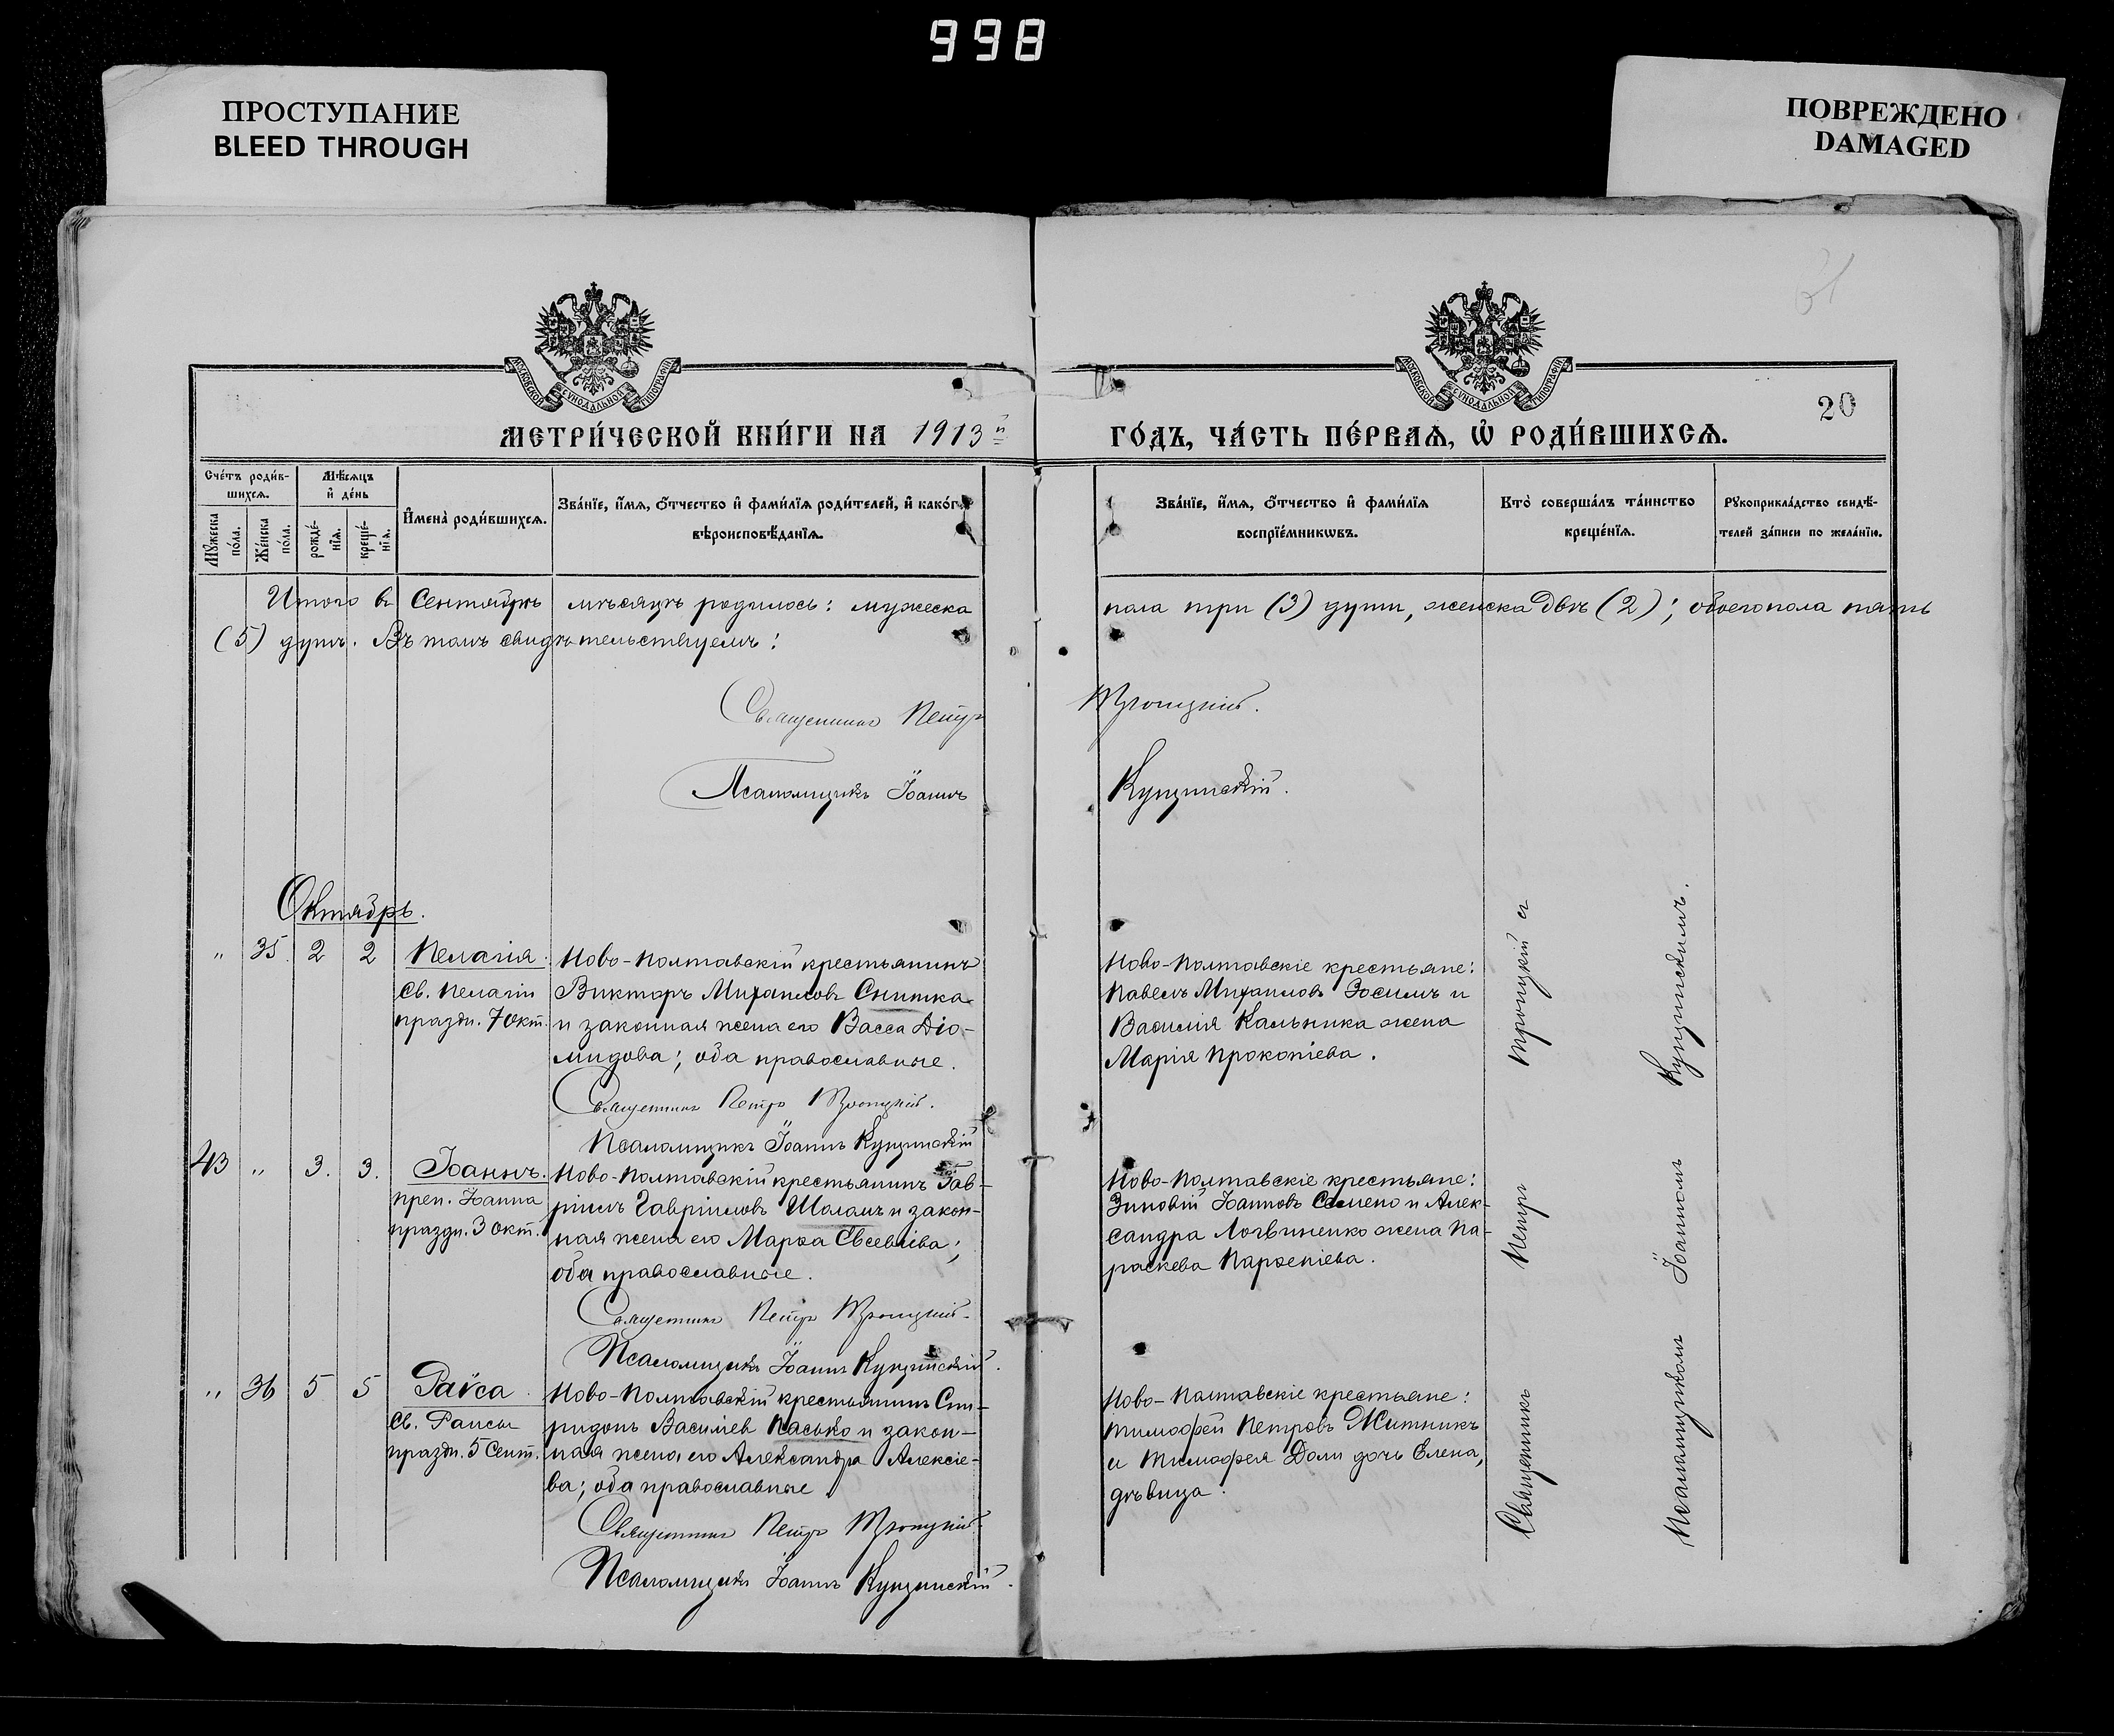 998
ПРОСТУПАНИЕ
BLEED THROUGH
ПОВРЕЖДЕНО
DAMAGED
20
МЕТРИ́ЧЕСКОЙ КНИ́ГИ НА 1913 й
ГО́ДЪ, ЧА́СТЬ ПЕ́РВАѦ, Ѡ҆ РОДИ́ВШИХСѦ.
Сче́тъ роди́в-
шихсѧ.
Мѣ́сѧцъ
и҆ де́нь
Мꙋ́жеска
по́ла.
Же́нска
по́ла.
рожде́-
нїѧ.
креще́-
нїѧ.
И҆мена̀ роди́вшихсѧ.
Зва́нїе, и҆́мѧ, ѻ҆́тчество и҆ фами́лїѧ роди́телей, и҆ како́гѡ
вѣроисповѣ́данїѧ.
Зва́нїе, и҆́мѧ, ѻ҆́тчество и҆ фами́лїѧ
воспрїе́мникѡвъ.
Кто̀ соверша́лъ та́инство
креще́нїѧ.
Рꙋкоприкла́дство свидѣ́-
телей за́писи по жела́нїю.
Итого въ Сентябрѣ мѣсяцѣ родилось: мужеска
пола три (3) души, женска двѣ (2); обоего пола пять
(5) душъ. Въ томъ свидѣтельствуемъ:
Священникъ Петръ Троицкій.
Псаломщикъ Іоаннъ Кущинскій.
Октябрь.
" 35. 2 2 Пелагія.
Св. Пелагіи
праздн. 7 окт.
Ново-Полтавскій крестьянинъ
Викторъ Михаиловъ Снитка
и законная жена его Васса Діо-
мидова; оба православные.
Священникъ Петръ Троицкій.
Псаломщикъ Іоаннъ Кущинскій
Ново-Полтавскіе крестьяне:
Павелъ Михаиловъ Зосимъ и
Василія Кальника жена
Марія Прокопіева.
43 " 3. 3. Іоаннъ.
преп. Іоанна
праздн. 3 окт.
Ново-Полтавскій крестьянинъ Гав-
ріилъ Гавріиловъ Шаламъ и закон-
ная жена его Марѳа Евсевіева;
оба православные.
Священникъ Петръ Троицкій.
Псаломщикъ Іоаннъ Кущинскій.
Ново-Полтавскіе крестьяне:
Зиновій Іоанновъ Семено и Алек-
сандра Логвиненко жена Па-
раскева Парѳеніева.
" 36 5 5 Раиса
Св. Раисы
праздн. 5 Сент.
Ново-Полтавскій крестьянинъ Спи-
ридонъ Василіев Пасько и закон-
ная жена его Александра Алексіе-
ва; оба православные
Священникъ Петръ Троицкій
Псаломщикъ Іоаннъ Кущинскій.
Ново-Полтавскіе крестьяне:
Тимоѳей Петровъ Житникъ
и Тимоѳея Доли дочь Елена,
дѣвица.
Священникъ Петръ Троицкій съ
Псаломщикомъ Іоанномъ Кущинскимъ.